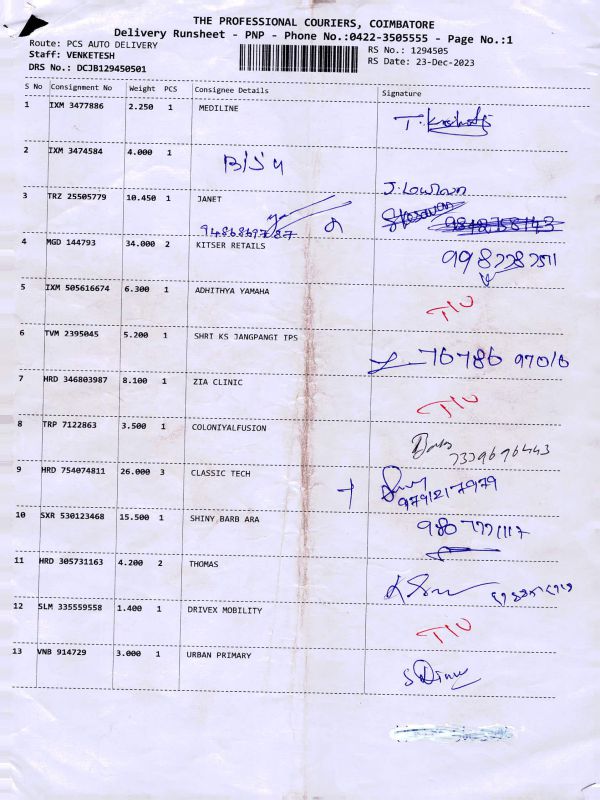 THE PROFESSIONAL COURIERS, COIMBATORE
Delivery Runsheet - PNP - Phone No.:0422-3505555 - Page No.:1
Route: PCS AUTO DELIVERY RS No.: 1294505
Staff: VENKETESH RS Date: 23-Dec-2023
DRS No.: DCJB129450501
S No Consignment No Weight PCS Consignee Details Signature
1 IXM 3477886 2.250 1 MEDILINE
2 IXM 3474584 4.000 1
3 TRZ 25505779 10.450 1 JANET
4 MGD 144793 34.000 2 KITSER RETAILS
5 IXM 505616674 6.300 1 ADHITHYA YAMAHA
6 TVM 2395045 5.200 1 SHRI KS JANGPANGI TPS
76786 97010
7 HRD 346803987 8.100 1 ZIA CLINIC
8 TRP 7122863 3.500 1 COLONIYALFUSION
7339696443
9 HRD 754074811 26.000 3 CLASSIC TECH
9791217979
10 SXR 530123468 15.500 1 SHINY BARB ARA
11 HRD 305731163 4.200 2 THOMAS
12 SLM 335559558 1.400 1 DRIVEX MOBILITY
13 VNB 914729 3.000 1 URBAN PRIMARY